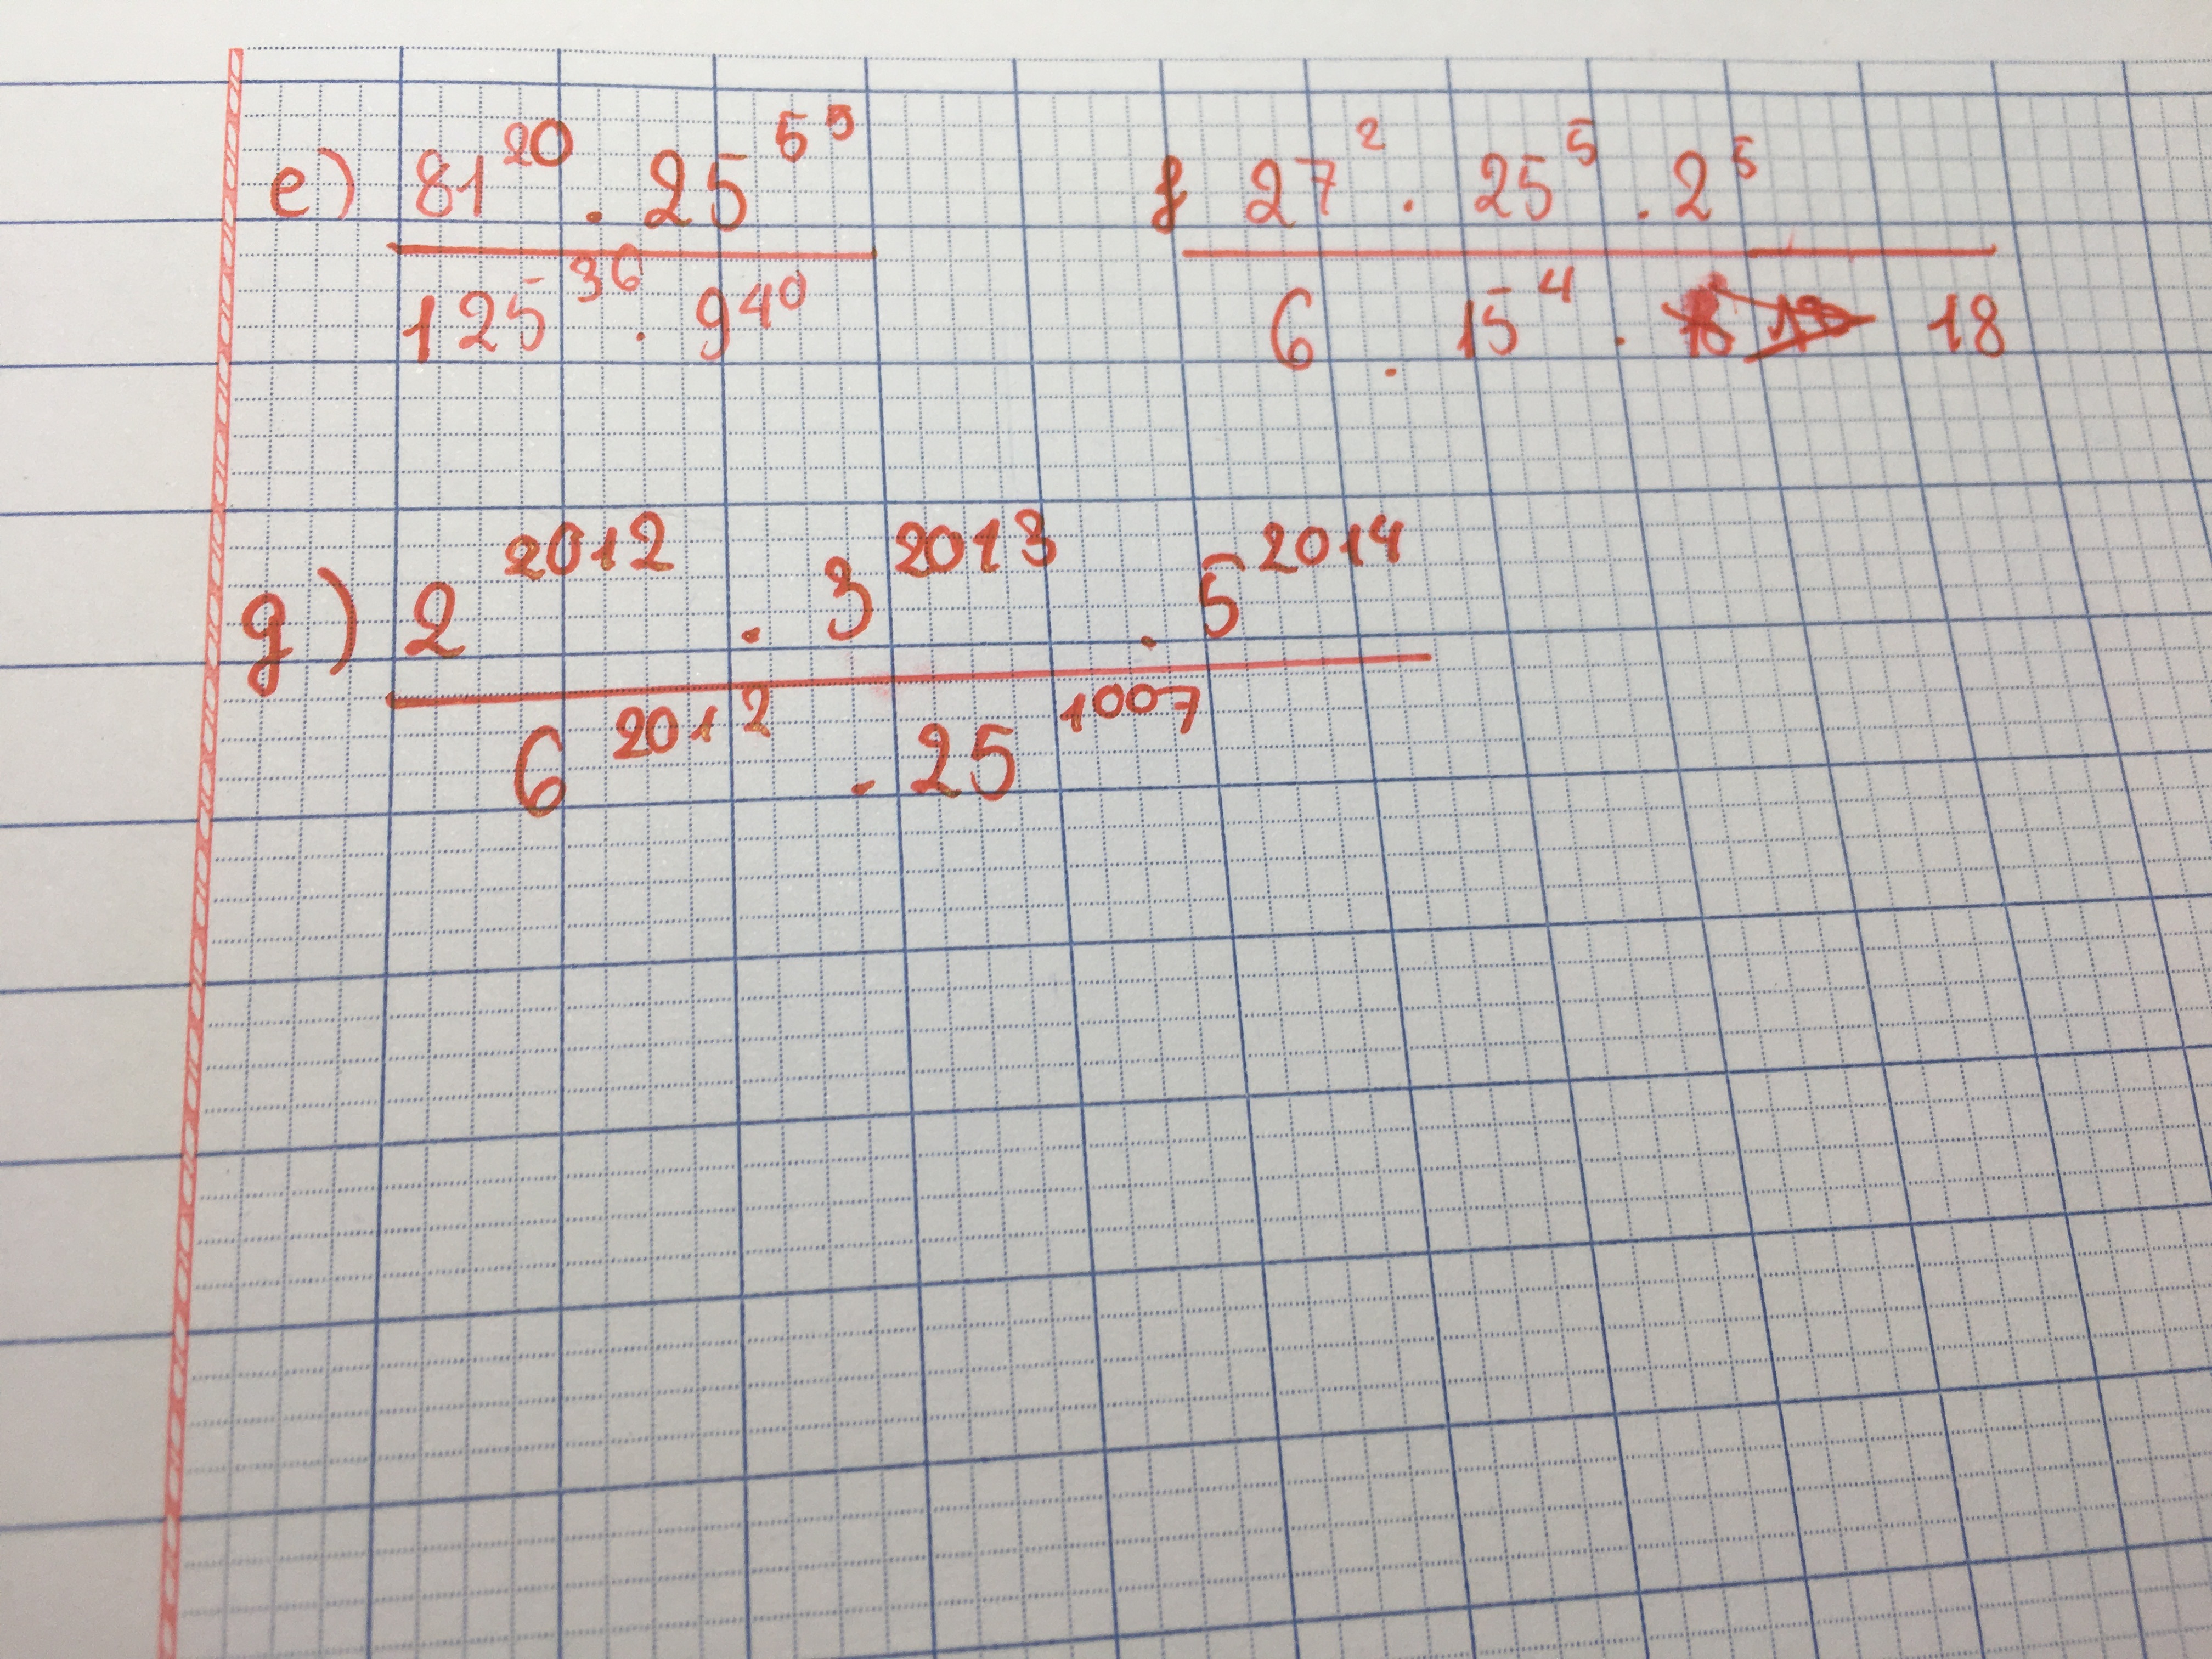 e) 81^20 . 25^55 f 27^2 . 25^5 . 2^5
125^36 . 9^40 6 . 15^4 . 18
g) 2^2012 . 3^2013 . 5^2014
6^2012 . 25^1007